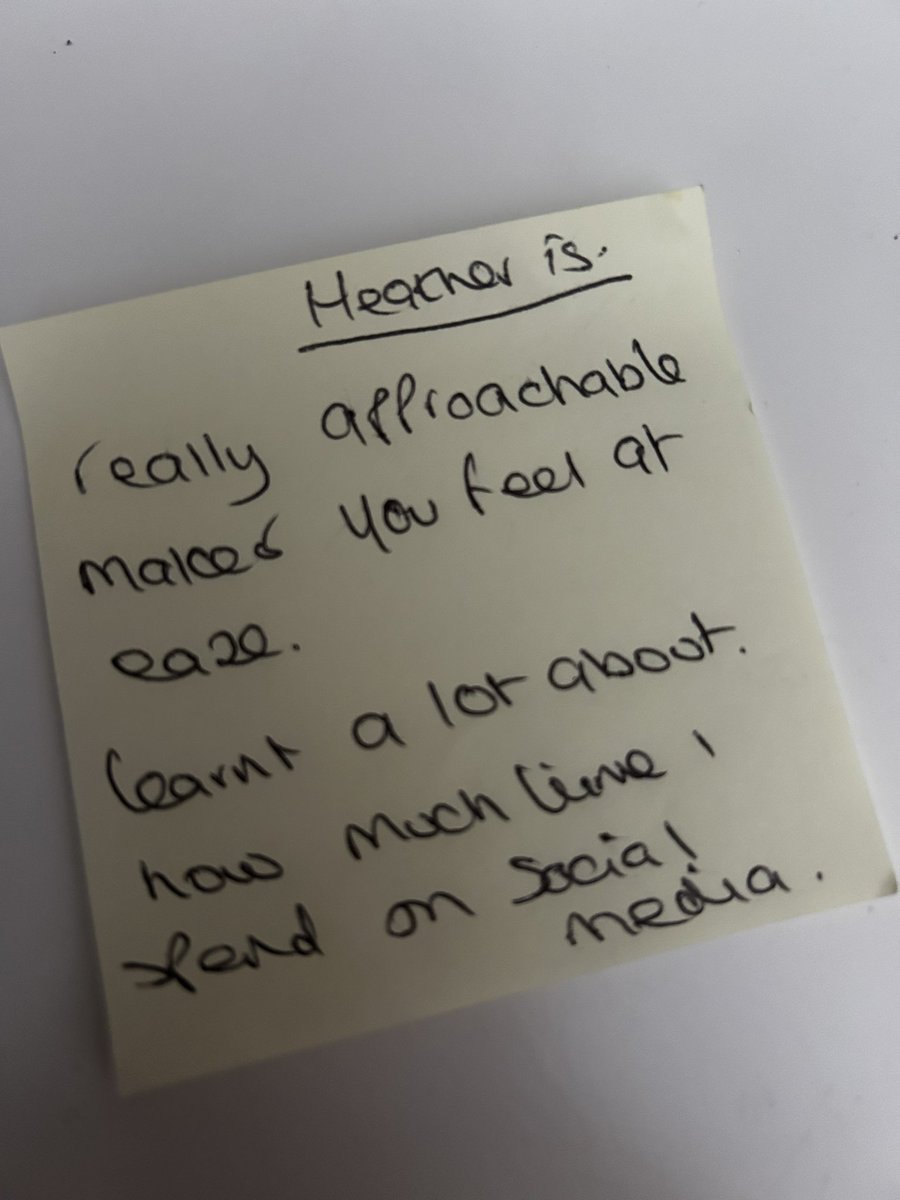 Heather is.
really approachable
makes you feel at
ease.
learnt a lot about.
how much time I
spend on social
media.